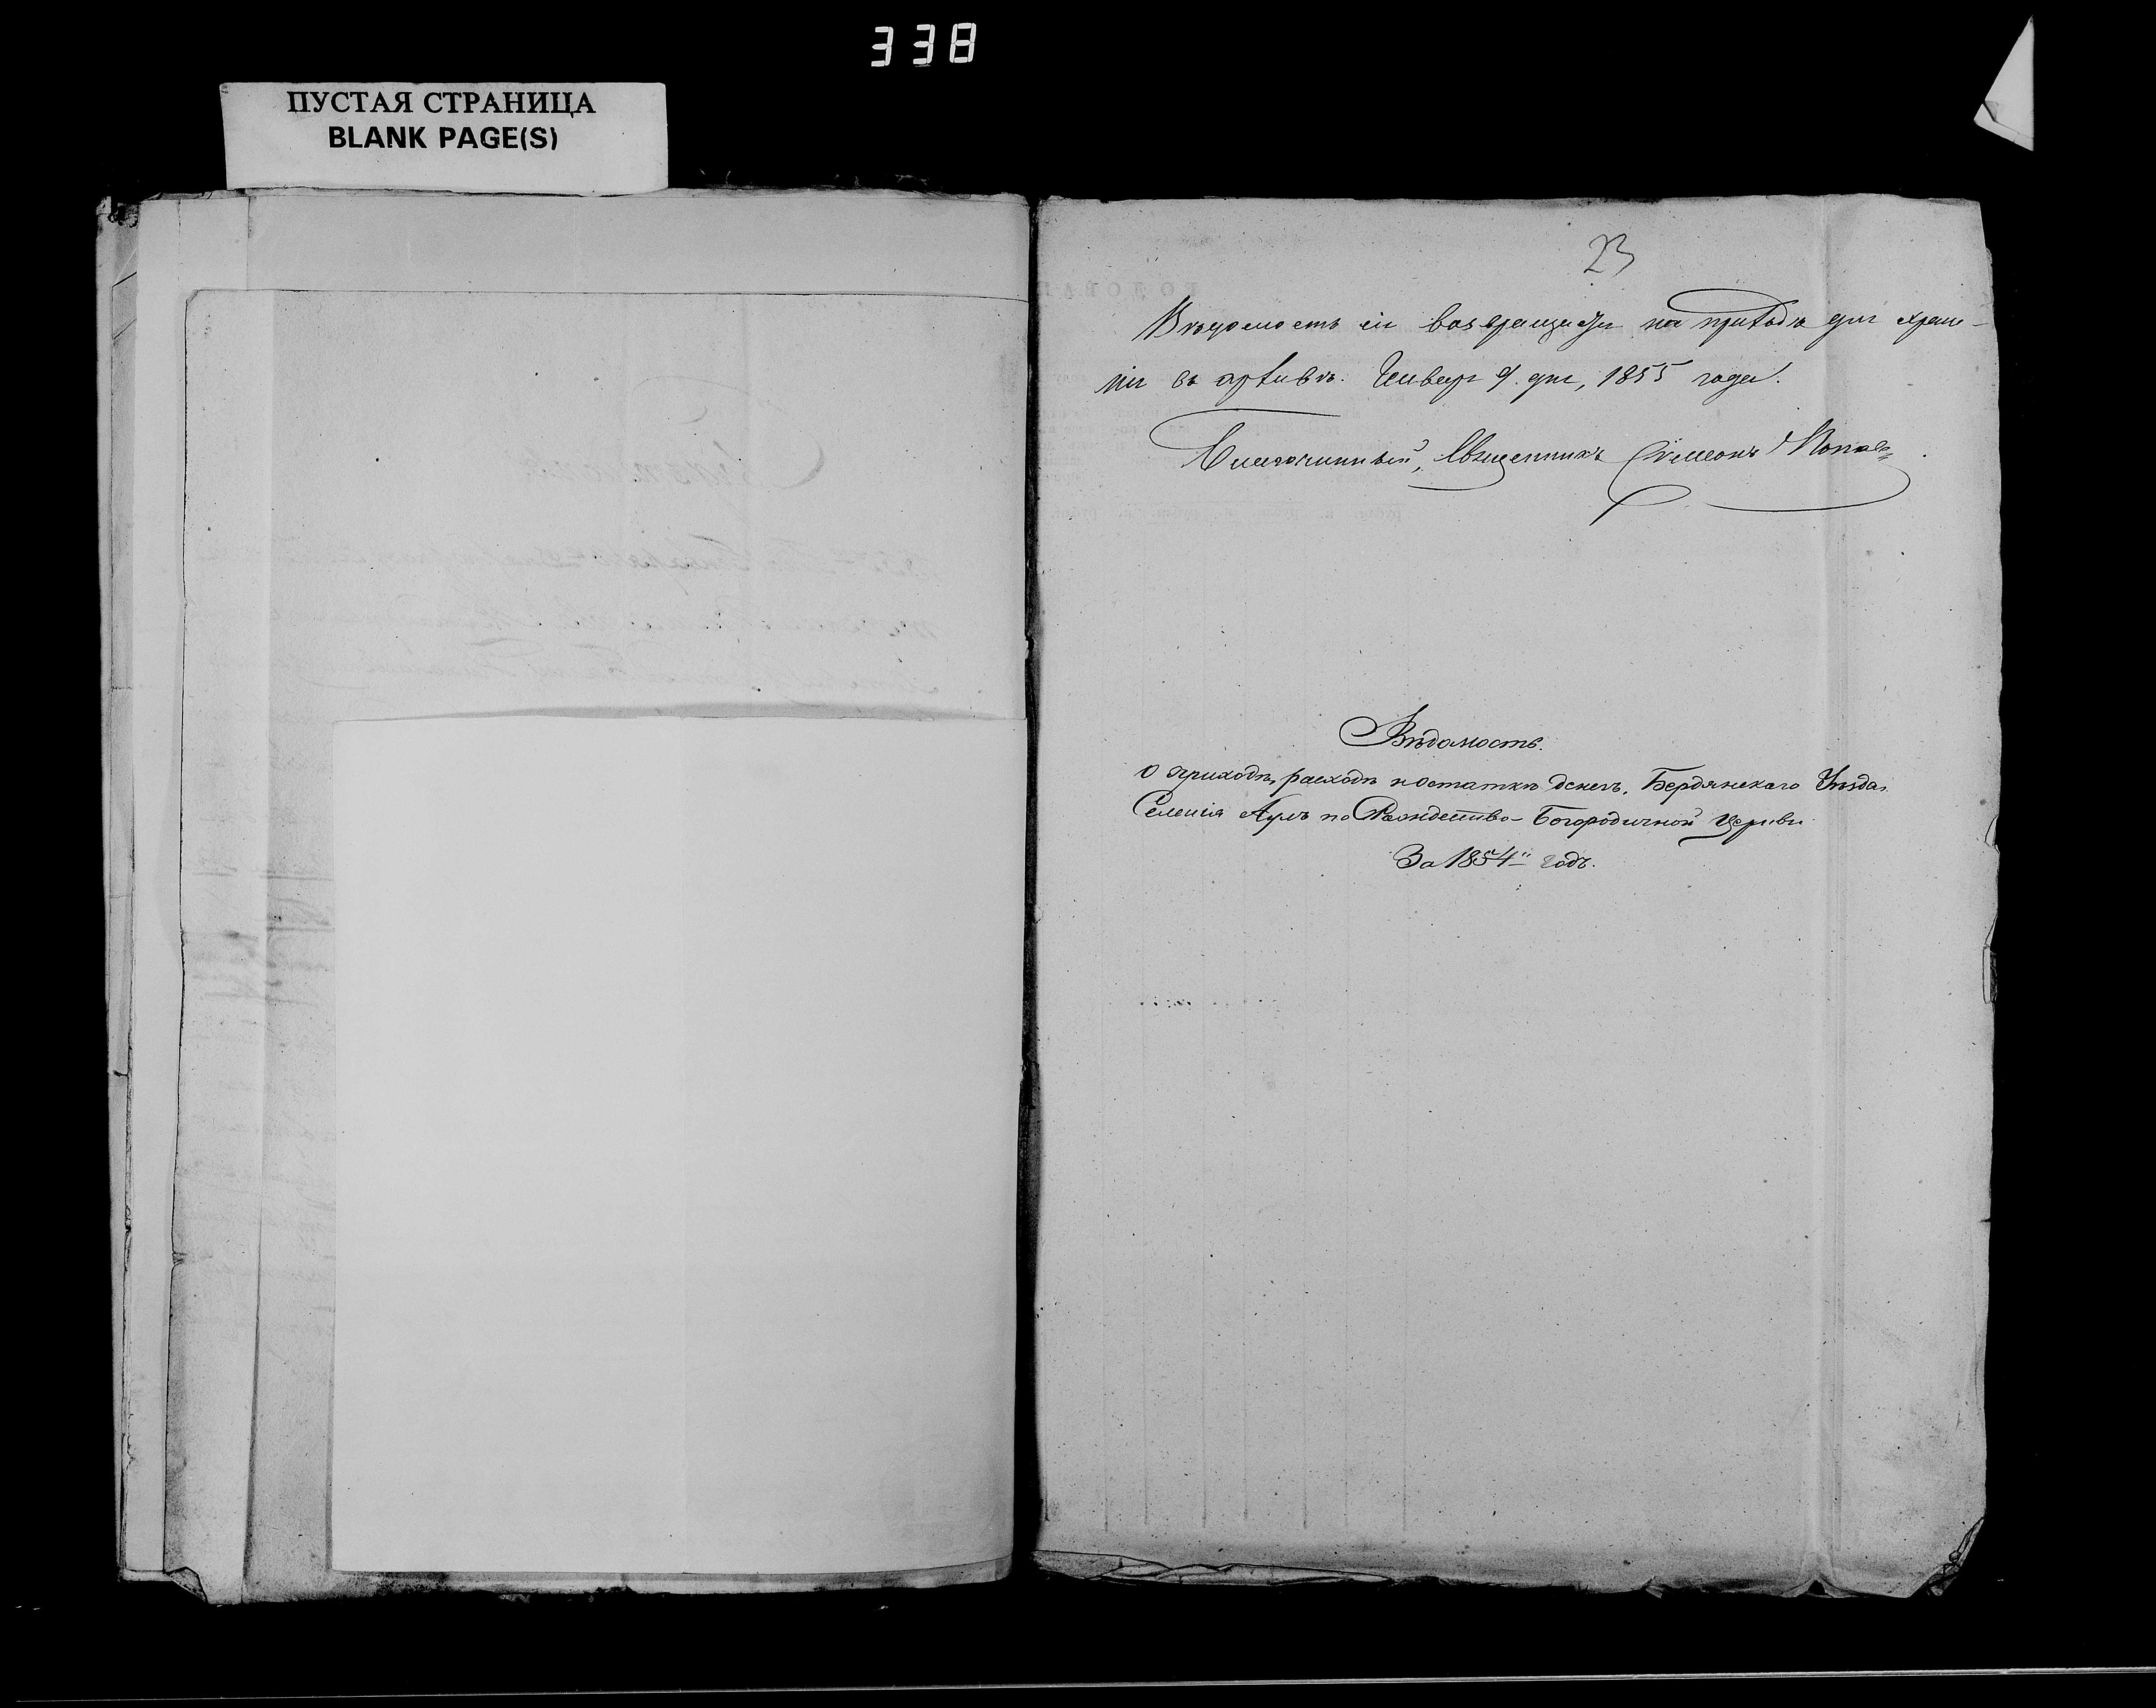 338
ПУСТАЯ СТРАНИЦА
BLANK PAGE(S)
23
Вѣдомость сія возвращается на приходъ для хране-
нія въ архивѣ. Января 9. дня, 1855 года.
Благочинный, Священникъ Сѵмеонъ Поповъ
Вѣдомость.
О приходѣ, расходѣ и остаткѣ денегъ, Бердянскаго Уѣзда,
Селенія Аулъ по Рождество-Богородичной Церкви
За 1854й годъ.